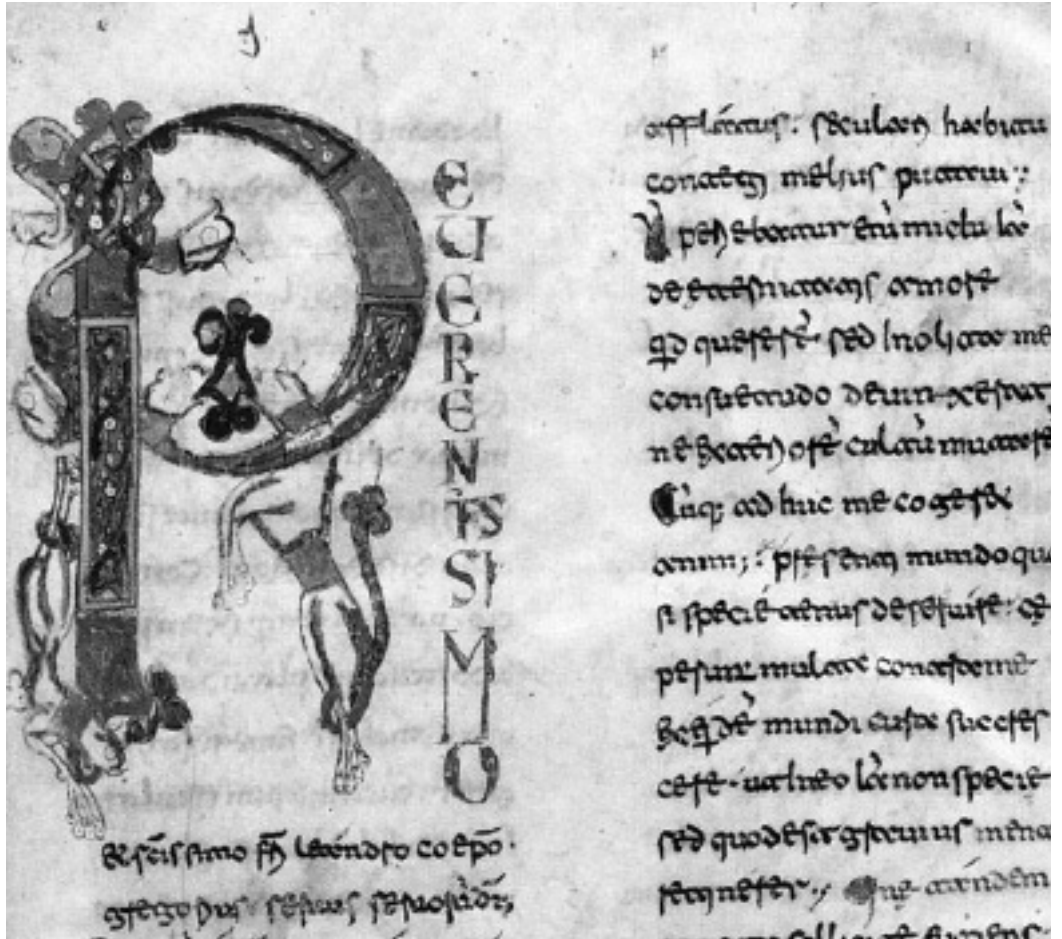 REUERENTISSIMO
& scissimo frī leandro coepō.
gregorius seruus seruorū dī;
afflatus: seculari habitu
contegi melius putaui;
de aeternitatis amore
qd quererē. sed Inolita me
consuetudo deuinxerat
ne exteriorē cultū mutarē
Cūq; ad huc me cogeret
anim; presenti mundo qua
si specietenus deseruire: cę
perunt multa contra me
mundi cura succres
cere. ut in eo iā non specie
sed quod est grauius mente
retinerer.